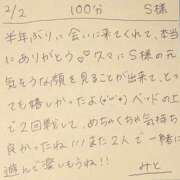 2/2 100分 S様
半年ぶりに会いに来てくれて、本当
にありがとう♡久々にS様の元
気そうな顔を見ることが出来て、とっ
ても嬉しかったよ(^o^)ベッドの上
で2回戦して、めちゃくちゃ気持ち
良かったね!!!また2人で一緒に
遊んで楽しもうね!!
みと